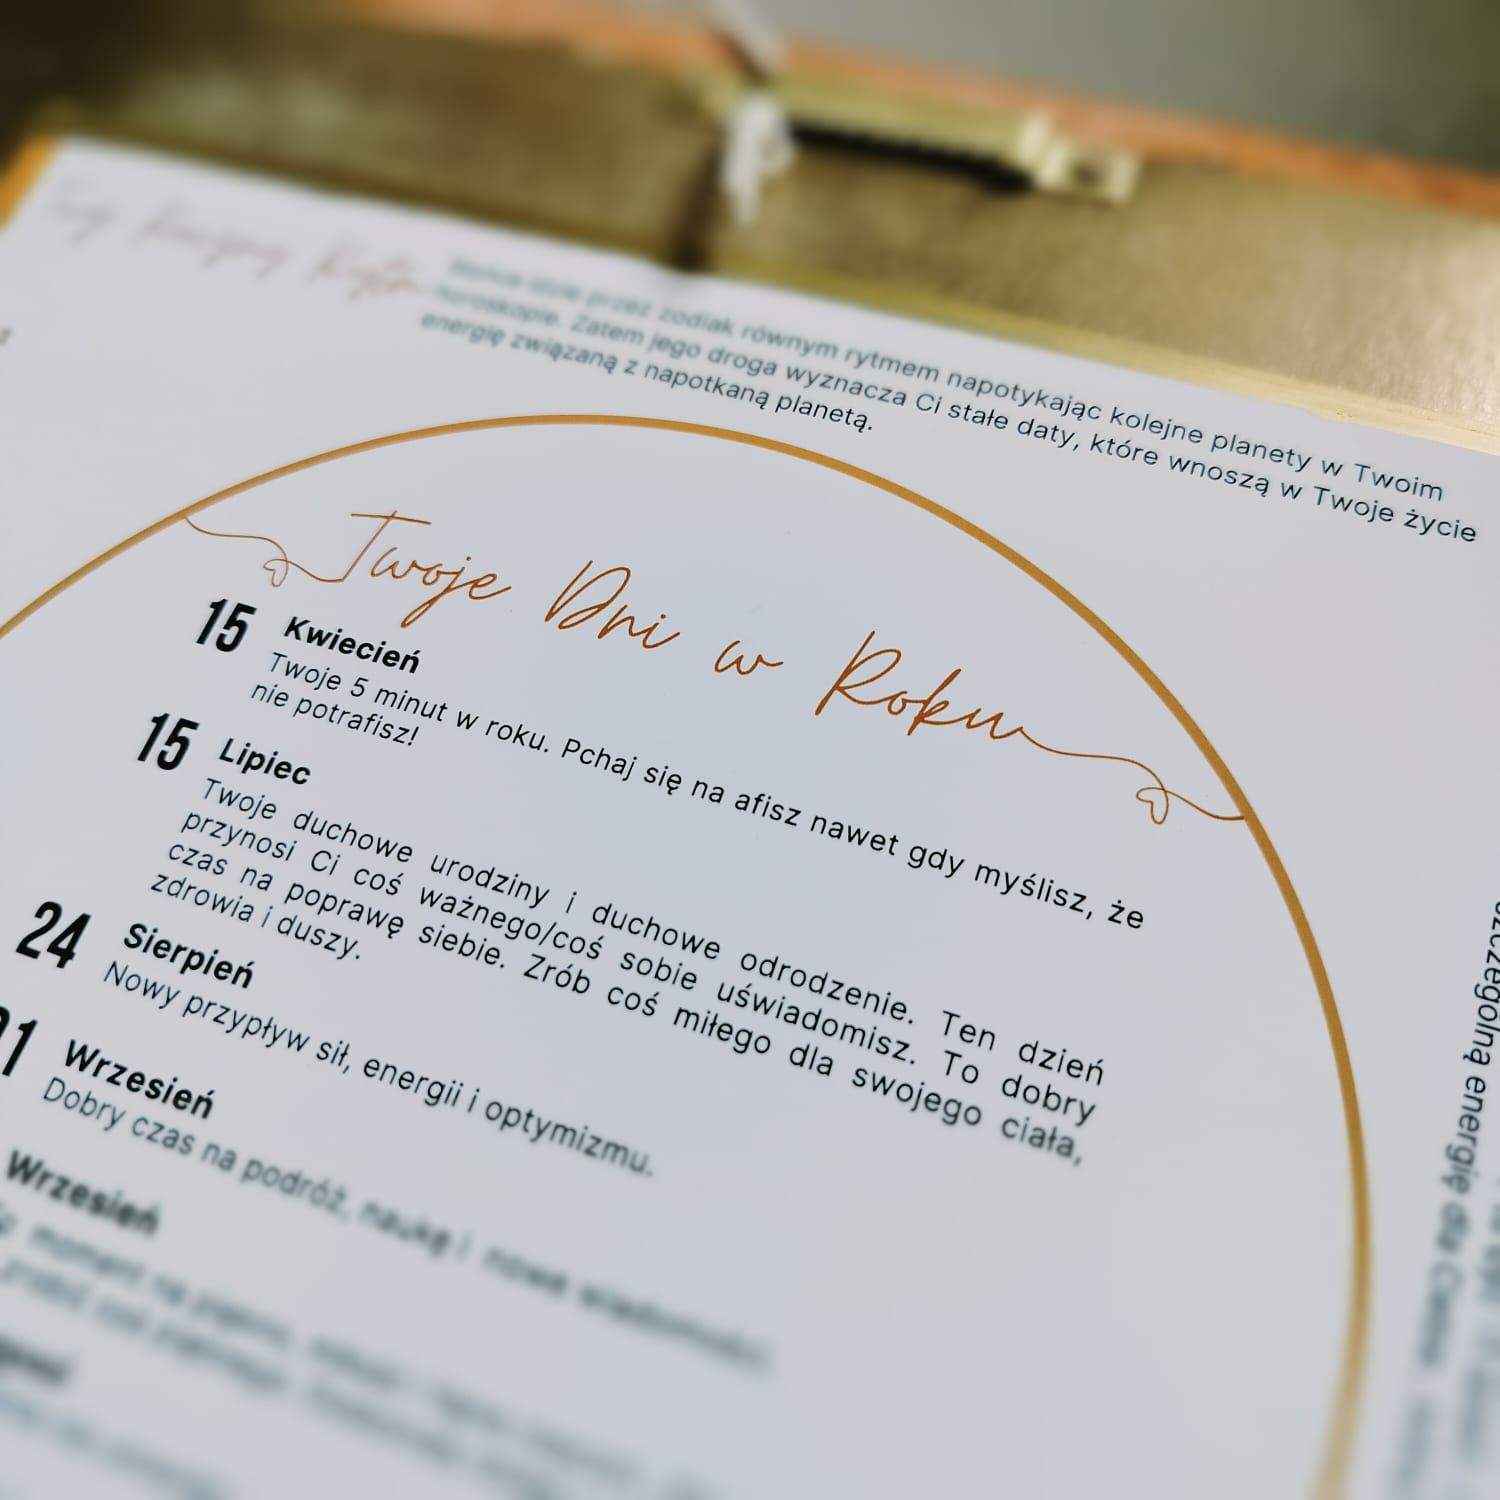 Twój Rytm
Słońce idzie przez zodiak równym rytmem napotykając kolejne planety w Twoim
horoskopie. Zatem jego droga wyznacza Ci stałe daty, które wnoszą w Twoje życie
energię związaną z napotkaną planetą.
Twoje Dni w Roku
15 Kwiecień
Twoje 5 minut w roku. Pchaj się na afisz nawet gdy myślisz, że
nie potrafisz!
15 Lipiec
Twoje duchowe urodziny i duchowe odrodzenie. Ten dzień
przynosi Ci coś ważnego/coś sobie uświadomisz. To dobry
czas na poprawę siebie. Zrób coś miłego dla swojego ciała,
zdrowia i duszy.
24 Sierpień
Nowy przypływ sił, energii i optymizmu.
Wrzesień
Dobry czas na podróż, naukę i nowe wiadomości.
Wrzesień
moment na
energię dla Ciebie.